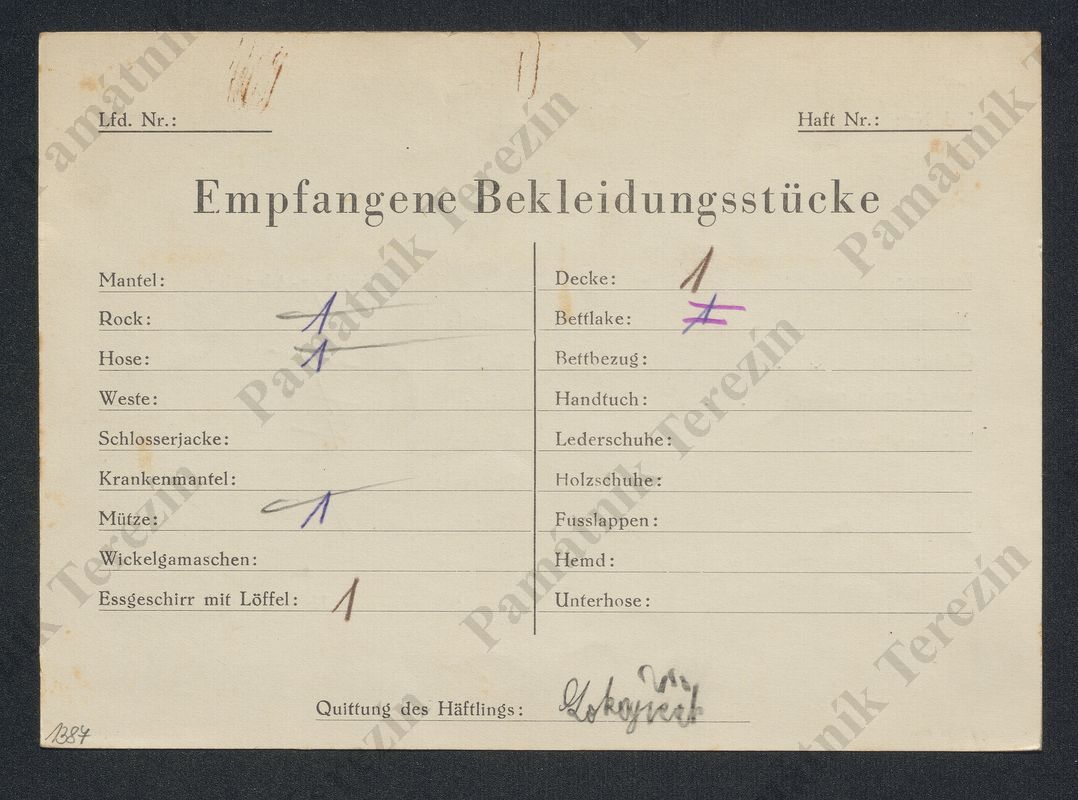 Lfd. Nr.:
Haft Nr.:
Empfangene Bekleidungsstücke
Mantel:
Rock: 1
Hose: 1
Weste:
Schlosserjacke:
Krankenmantel:
Mütze: 1
Wickelgamaschen:
Essgeschirr mit Löffel: 1
Decke: 1
Bettlake: 1
Bettbezug:
Handtuch:
Lederschuhe:
Holzschuhe:
Fusslappen:
Hemd:
Unterhose:
Quittung des Häftlings:
1387
Památník Terezín